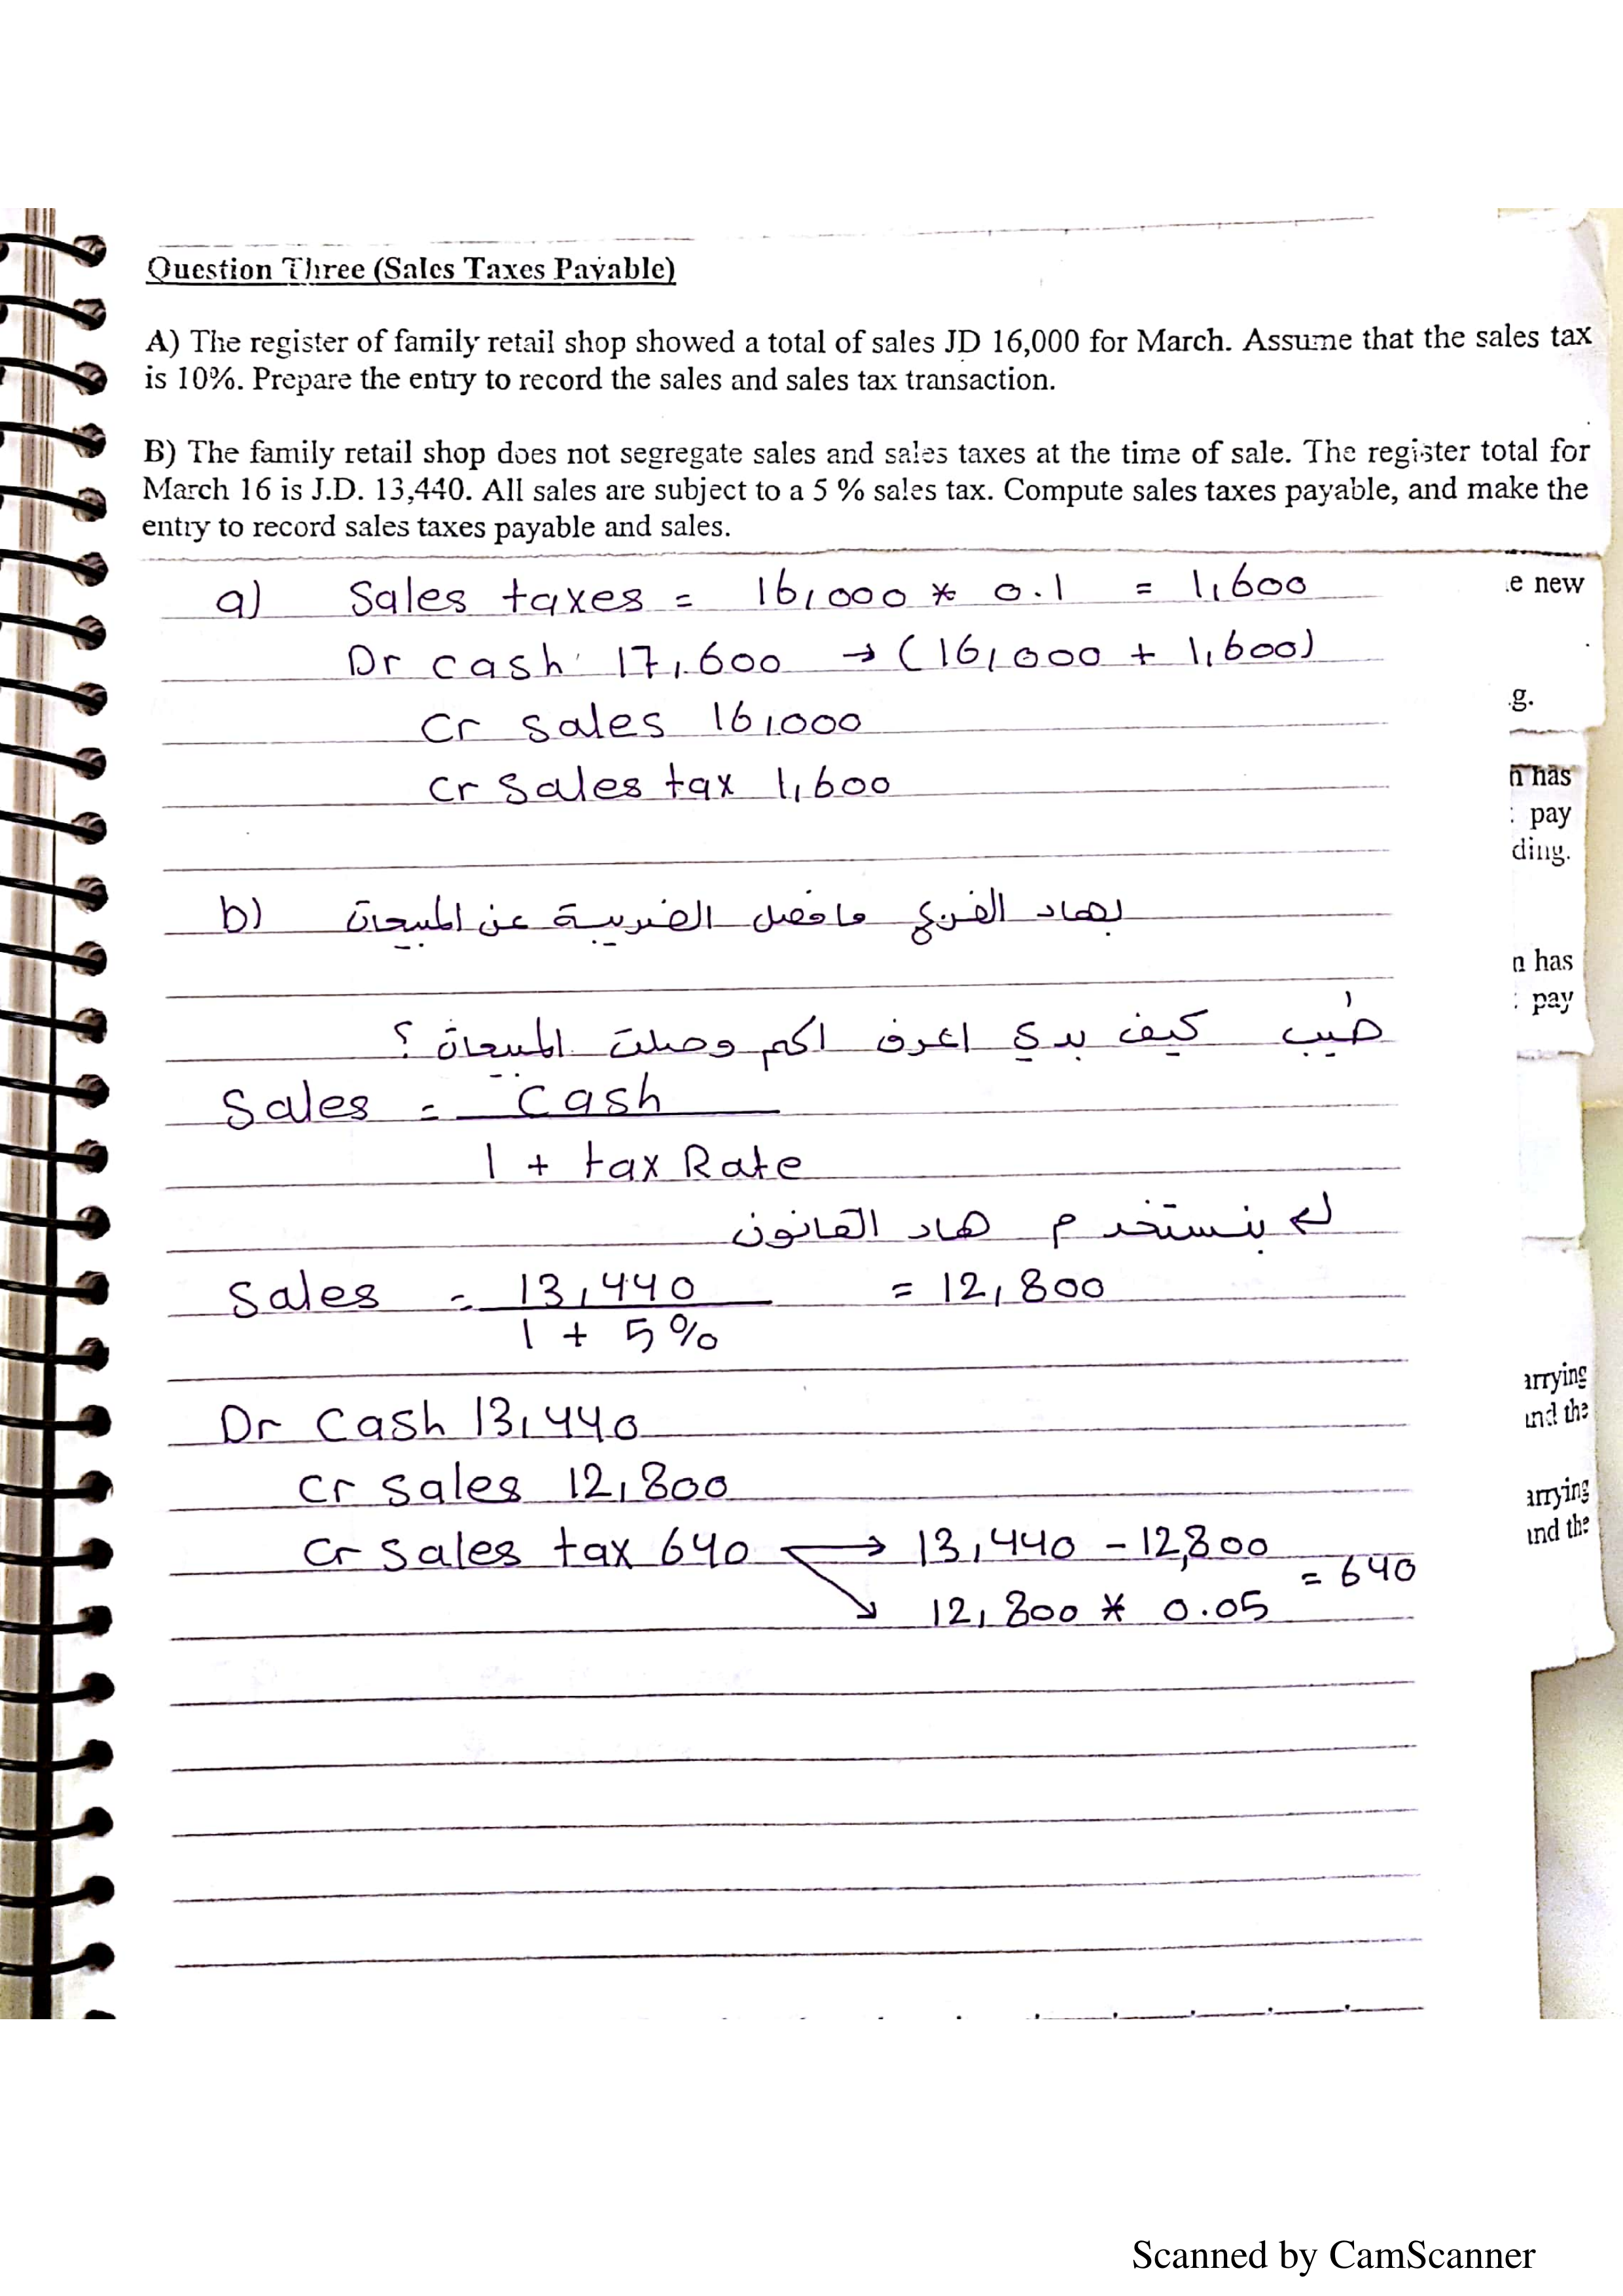 Question Three (Sales Taxes Payable)
A) The register of family retail shop showed a total of sales JD 16,000 for March. Assume that the sales tax
is 10%. Prepare the entry to record the sales and sales tax transaction.
B) The family retail shop does not segregate sales and sales taxes at the time of sale. The register total for
March 16 is J.D. 13,440. All sales are subject to a 5 % sales tax. Compute sales taxes payable, and make the
entry to record sales taxes payable and sales.
a) Sales taxes = 16,000 * 0.1 = 1,600
e new
Dr cash 17,600 → (16,000 + 1,600)
g.
Cr sales 16,000
n has
Cr Sales tax 1,600
: pay
ding.
b) بهاد الفرع ما فصل الضريبة عن المبيعات
n has
: pay
طيب كيف بدي اعرف اكم وصلت المبيعات ؟
Sales = Cash
1 + tax Rate
بنستخدم هاد القانون
Sales = 13,440 = 12,800
1 + 5%
arrying
and the
Dr Cash 13,440
Cr Sales 12,800
arrying
and the
Cr Sales tax 640 → 13,440 - 12,800
= 640
↘ 12,800 * 0.05
Scanned by CamScanner